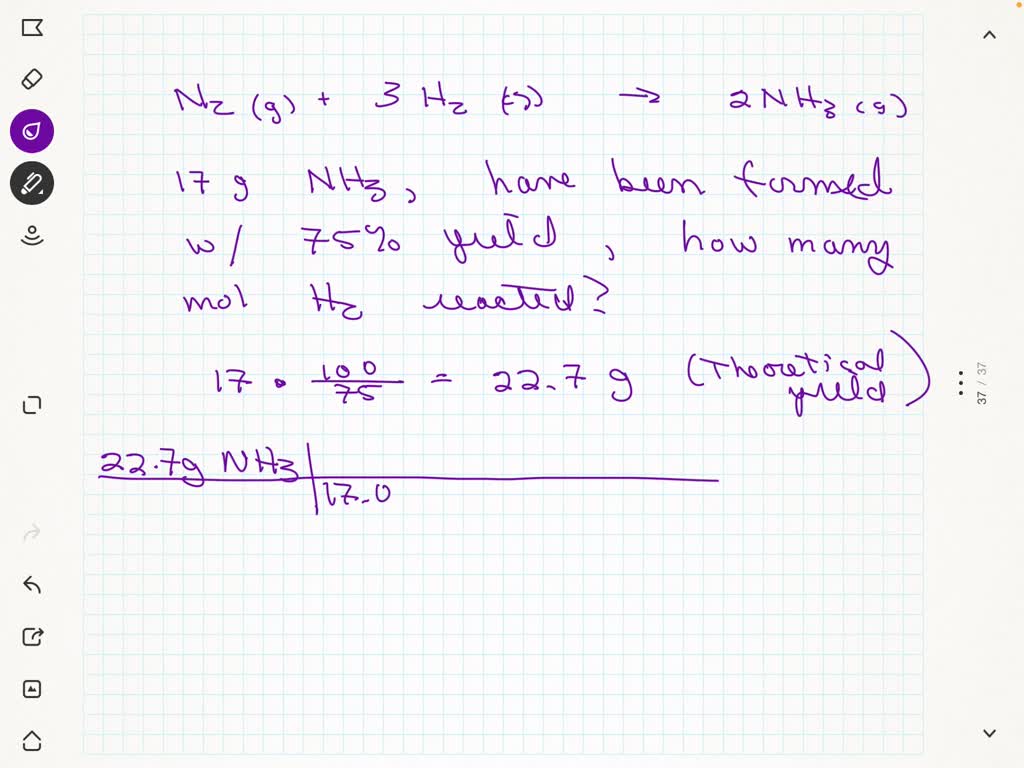 N2 (g) + 3 H2 (g) → 2NH3 (g)
17 g NH3, have been formed
w/ 75% yield, how many
mol H2 reacted?
17 • 100/75 = 22.7 g (Theoretical yield)
22.7g NH3
17.0
37 / 37